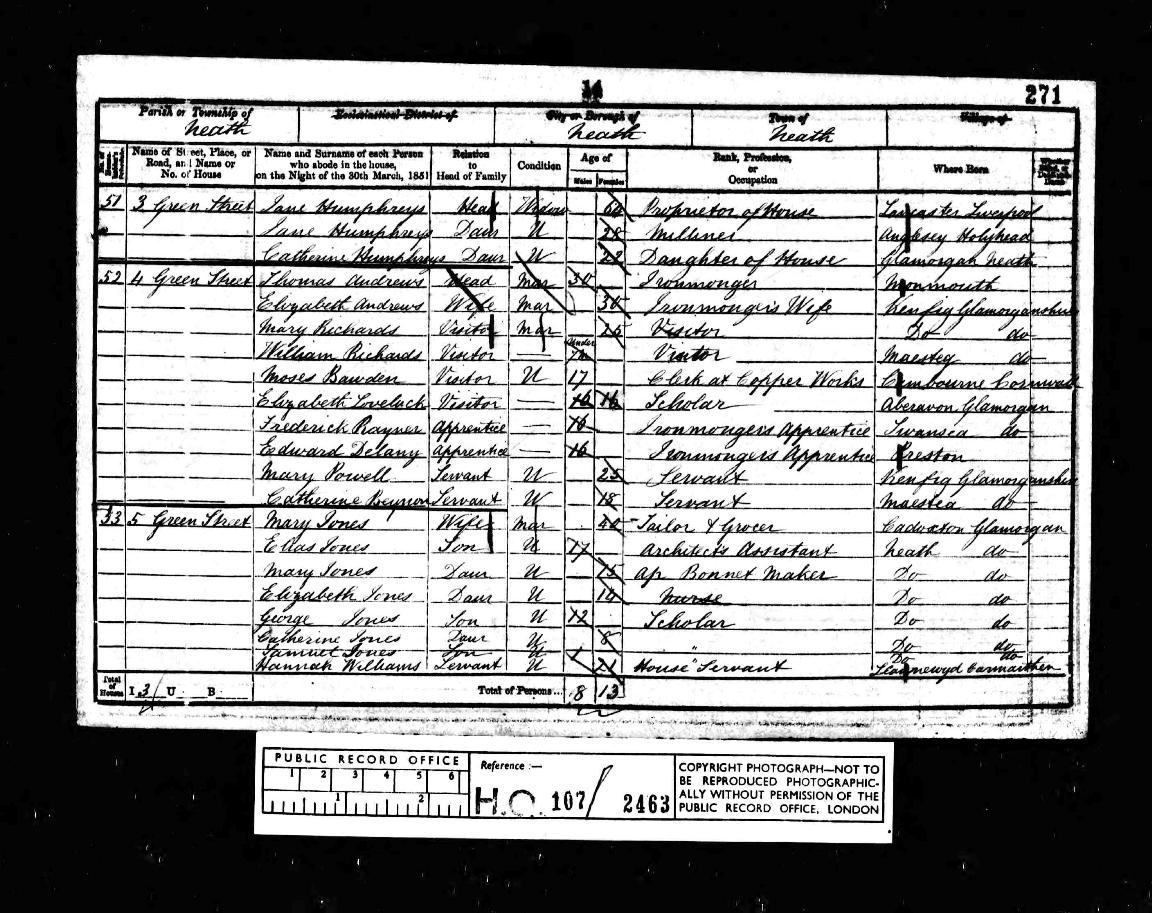 14
271
Parish or Township of Ecclesiastical District of City or Borough of Town of Village of
Neath Neath Neath
Name of Street, Place, or Road, and Name or No. of House
Name and Surname of each Person who abode in the house, on the Night of the 30th March, 1851
Relation to Head of Family
Condition
Age of
Males Females
Rank, Profession, or Occupation
Where Born
51 3 Green Street Jane Humphreys Head Widow 64 Proprietor of House Lancaster Liverpool
Jane Humphreys Daur U 28 Milliner Anglesey Holyhead
Catherine Humphreys Daur U 22 Daughter of House Glamorgan Neath
52 4 Green Street Thomas Andrews Head Mar 30 Ironmonger Monmouth
Elizabeth Andrews Wife Mar 30 Ironmonger's Wife Kenfig Glamorganshire
Mary Richards Visitor Mar 25 Visitor Do do
William Richards Visitor — Under Visitor Maesteg do
Moses Bawden Visitor U 17 Clerk at Copper Works Cambourne Cornwall
Elizabeth Loveluck Visitor — 16 16 Scholar Aberavon Glamorgan
Frederick Rayner Apprentice — 16 Ironmongers Apprentice Swansea do
Edward Delany Apprentice — 16 Ironmongers Apprentice Preston
Mary Powell Servant U 25 Servant Kenfig Glamorganshire
Catherine Beynon Servant U 18 Servant Maesteg do
53 5 Green Street Mary Jones Wife Mar 40 Tailor & Grocer Cadoxton Glamorgan
Elias Jones Son U 17 Architect's Assistant Neath do
Mary Jones Daur U 15 Ap Bonnet Maker Do do
Elizabeth Jones Daur U 14 Nurse Do do
George Jones Son U 12 Scholar Do do
Catherine Jones Daur U 8 Do do
Samuel Jones Son U 1 Do do
Hannah Williams Servant U 21 House Servant Llannewyd Carmarthen
Total of Houses I 3 U B Total of Persons... 8 13
PUBLIC RECORD OFFICE
1 2 3 4 5 6
1 2
Reference :—
H.O. 107/ 2463
COPYRIGHT PHOTOGRAPH—NOT TO
BE REPRODUCED PHOTOGRAPHIC-
ALLY WITHOUT PERMISSION OF THE
PUBLIC RECORD OFFICE, LONDON